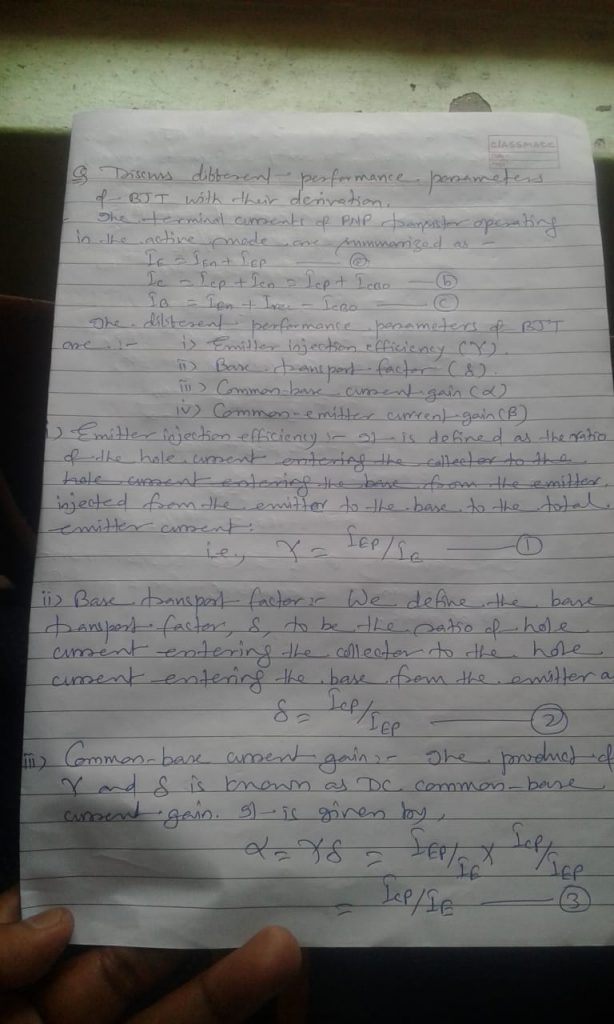 classmate
Q Discuss different performance parameters
of BJT with their derivation.
The terminal currents of PNP transistor operating
in the active mode are summarized as -
IE = IEn + IEP —— (a)
IC = ICP + ICn = ICP + ICBO —— (b)
IB = IEn + - ICBO —— (c)
The different performance parameters of BJT
are :- i) Emitter injection efficiency (γ).
ii) Base transport factor (δ).
iii) Common-base current gain (α)
iv) Common-emitter current gain (β)
i) Emitter injection efficiency :- It is defined as the ratio
of the hole current entering the collector to the
hole current entering the base from the emitter,
injected from the emitter to the base to the total
emitter current.
i.e., γ = IEP/IE —— (1)
ii) Base transport factor :- We define the base
transport factor, δ, to be the ratio of hole
current entering the collector to the hole
current entering the base from the emitter a
δ = ICP/IEP —— (2)
iii) Common-base current gain :- The product of
γ and δ is known as DC common-base
current gain. It is given by,
α = γδ = IEP/IE × ICP/IEP
= ICP/IE —— (3)